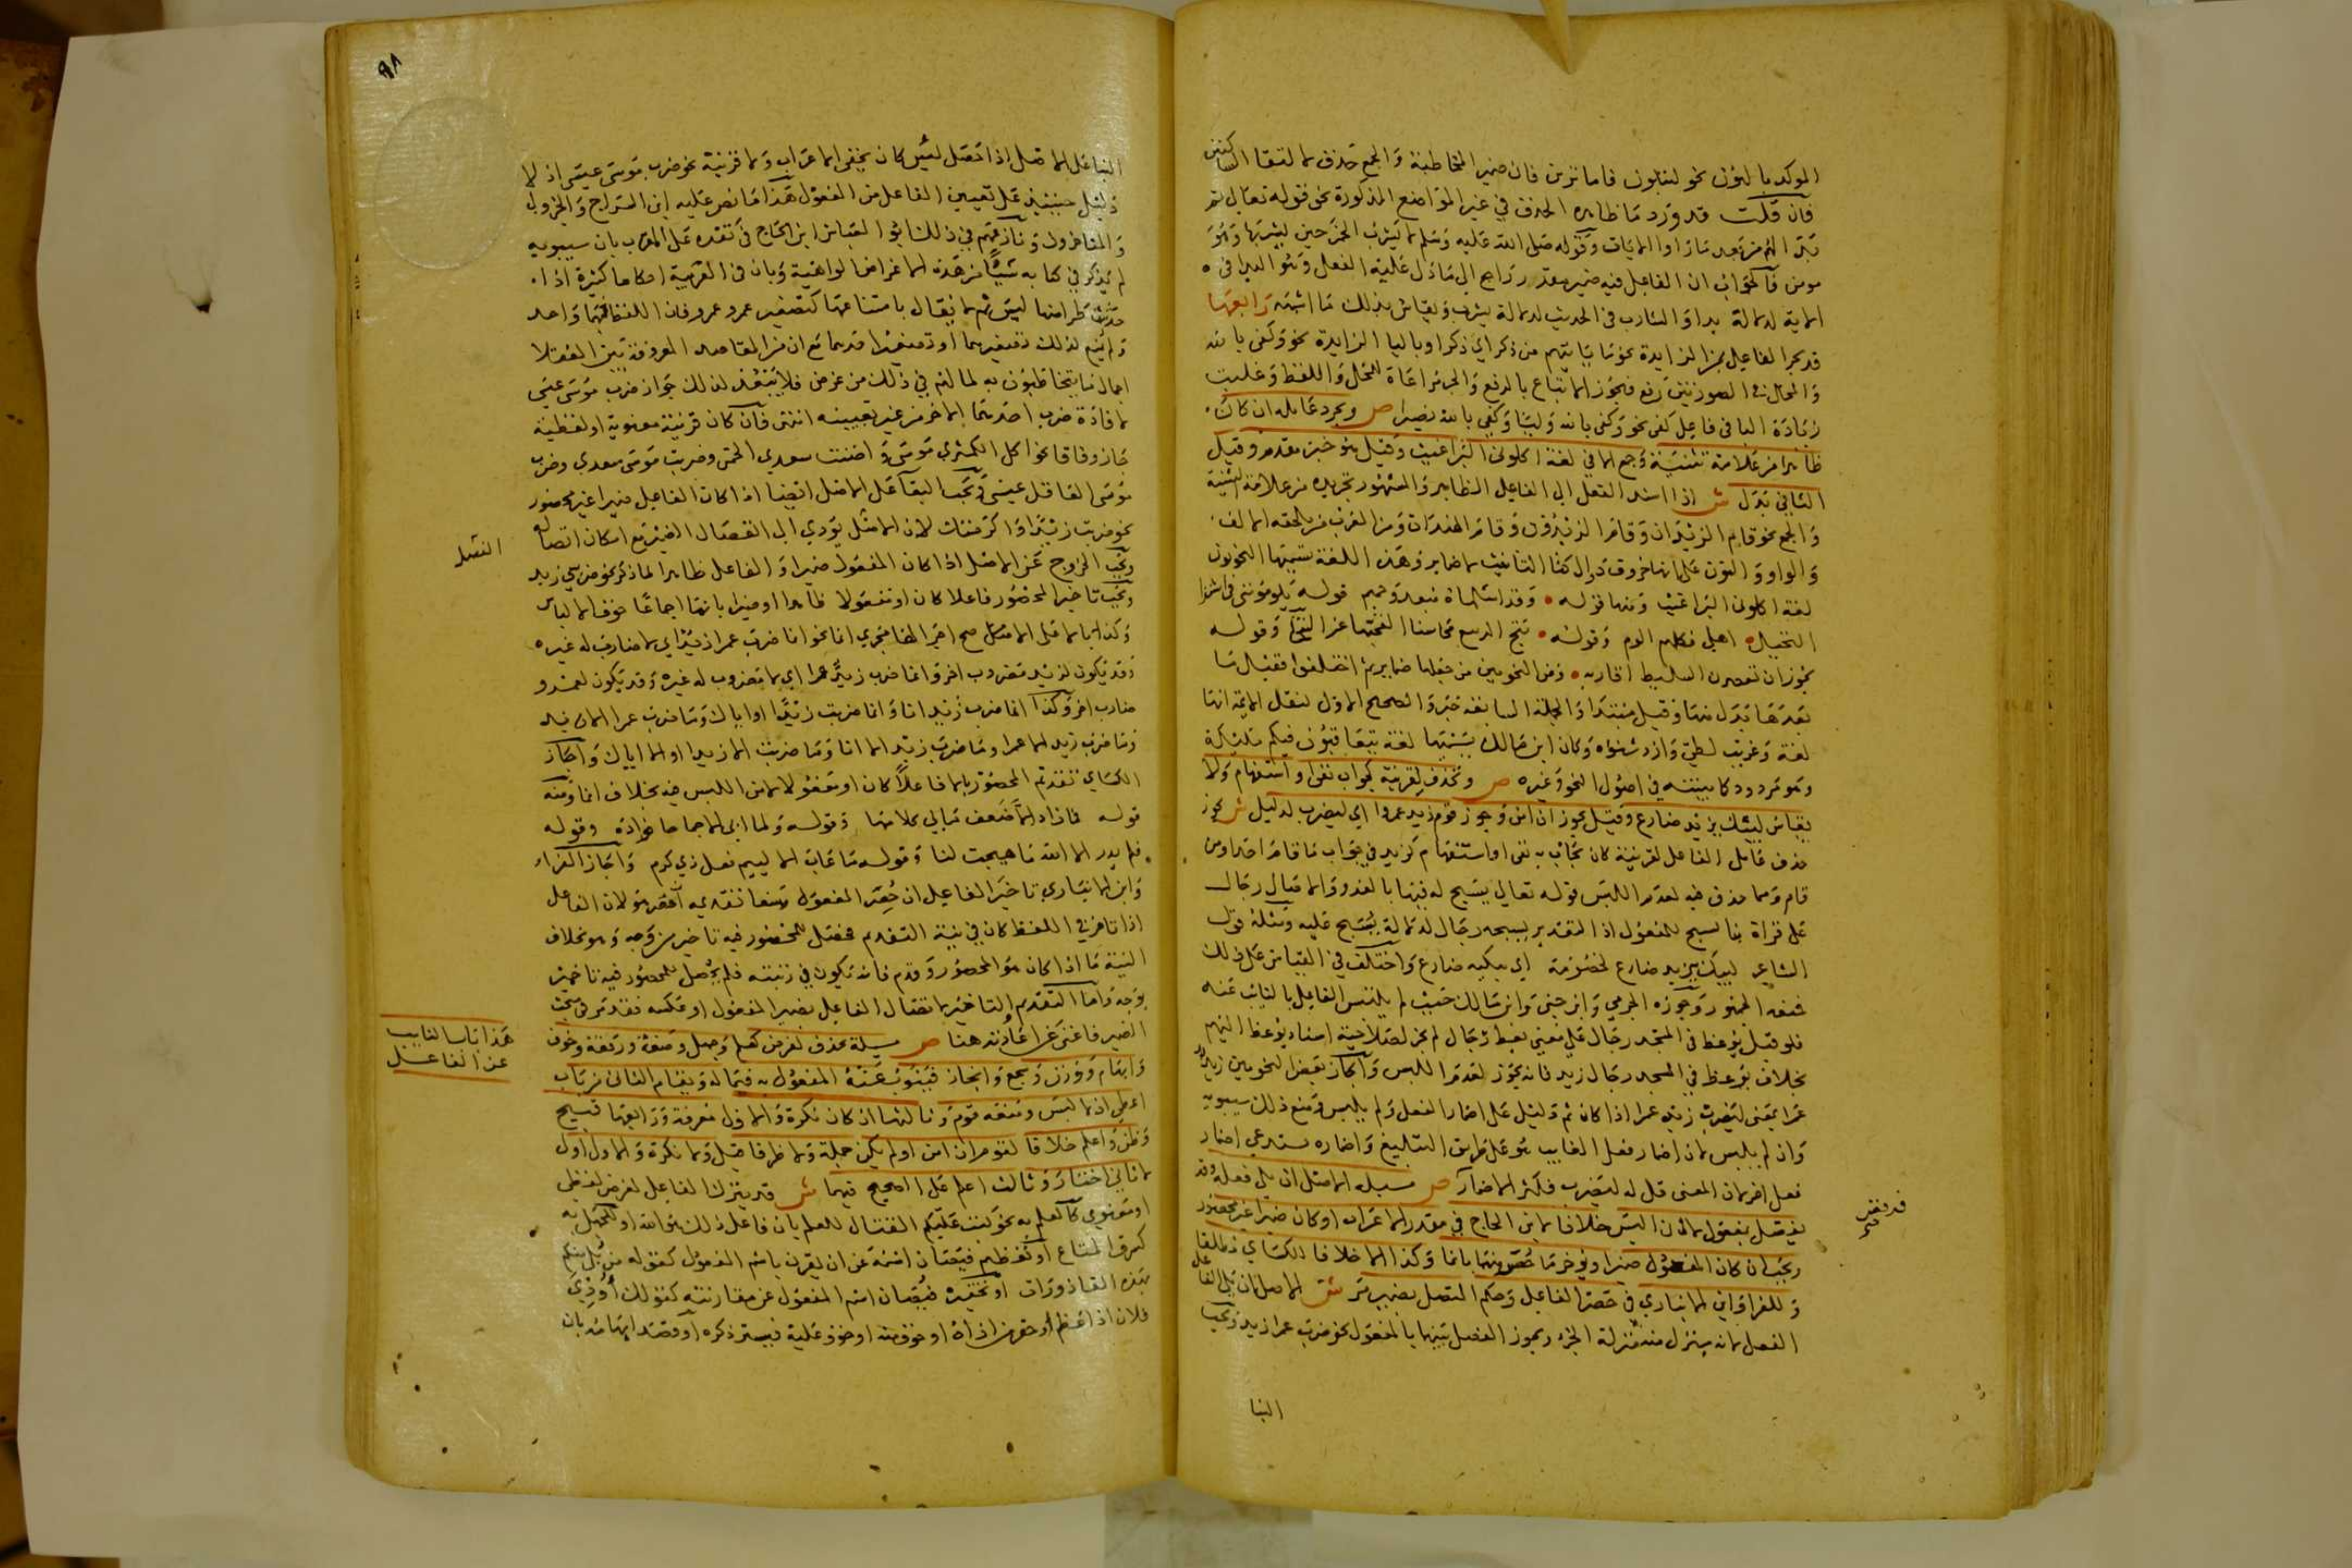 الموكد بالنون نحو لتبلون فاما ترين فان ضمير المخاطبة والجمع حذف لالتقا الساكنين
فان قلت قد ورد ما ظاهره الحذف في غير المواضع المذكورة نحو قوله تعالى ثم
بدا لهم من بعد ما راوا الايات وقوله صلى الله عليه وسلم لا يشرب الخمر حين يشربها وهو
مومن فالجواب ان الفاعل فيه ضمير مقدر راجع الى ما دل عليه الفعل وهو البدا في
الاية لدلالة بدا والشارب في الحديث لدلالة يشرب ويقاس بذلك ما اشبهه رابعها
قد يجر الفاعل بمن الزايدة نحو ما ياتيهم من ذكر اي ذكر او بالبا الزايدة نحو وكفى بالله
والمحل في الصورتين رفع فيجوز الاتباع بالرفع والجر مراعاة للمحل واللفظ وغلبت
زيادة البا في فاعل كفى نحو وكفى بالله وليا وكفى بالله نصيرا ص ويجرد عامله ان كان
ظاهرا من علامة تثنية وجمع الا في لغة اكلوني البراغيث وقيل هو خبر مقدم وقيل
الثاني بدل ش اذا اسند الفعل الى الفاعل الظاهر والمشهور تجريده من علامة التثنية
والجمع نحو قام الزيدان وقام الزيدون وقام الهندات ومن العرب من يلحقه الالف
والواو والنون على انها حروف دوال كتا التانيث لا ضماير وهذه اللغة يسميها النحويون
لغة اكلوني البراغيث ومنها قوله وقد اسلماه مبعد وحميم قوله يلومونني في اشترا
النخيل اهلي فكلهم الوم وقوله نتج الربيع محاسنا القحنها غر السحائب وقوله
بحوران يعصرن السليط اقاربه ومن النحويين من جعلها ضماير ثم اختلفوا فقيل ما
بعدها بدل منها وقيل مبتدا والجملة السابقة خبر والصحيح الاول لنقل الايمة انها
لغة وعزيت لطي وازد شنوة وكان ابن مالك يسميها لغة يتعاقبون فيكم ملايكة
وهو مردود كما بينته في اصول النحو وغيره ص ويحذف لقرينة كجواب نفي او استفهام ولا
يقاس ليبك يزيد ضارع وقيل يجوز ان امن وجوز قوم زيد عمرا اي ليضرب لدليل ش يجوز
حذف عامل الفاعل لقرينة كان يجاب به نفي او استفهام كزيد في جواب ما قام احد او من
قام ومما حذف فيه لعدم اللبس قوله تعالى يسبح له فيها بالغدو والاصال رجال
على قراة بنا يسبح للمفعول اذ التقدير يسبحه رجال لدلالة يسبح عليه ومثله قول
الشاعر ليبك يزيد ضارع لخصومة اي يبكيه ضارع واختلف في القياس على ذلك
فمنعه الجمهور وجوزه الجرمي وابن جني وابن مالك حيث لم يلتبس الفاعل بالنايب عنه
فلو قيل يوعظ في المسجد رجال على معنى يعظ رجال لم يجز لصلاحية اسناد يوعظ اليهم
بخلاف يوعظ في المسجد رجال زيد فانه يجوز لعدم اللبس واجاز بعض النحويين زيد
عمرا بمعنى ليضرب زيد عمرا اذا كان ثم دليل على اضمار الفعل ولم يلبس ومنع ذلك سيبويه
وان لم يلبس لان اضمار فعل الغايب هو على طريق التبليغ واضماره يستدعي اضمار
فعل اخر لان المعنى قل له ليضرب فكثر الاضمار ص مسيلة الاصل ان يلي فعله وقد
يفصل بمفعول لا ان البس خلافا لابن الحاج في مقدر الاعراب او كان ضميرا غير محصور
ويجب ان كان المفعول ضميرا ويؤخر ما حصر منهما بانما وكذا الا خلافا للكساي مطلقا
وللفرا وابن الانباري في حصر الفاعل وحكم المتصل بضمير مر ش الاصل ان يلي الفاعل
الفعل لانه يتنزل منه منزلة الجزء ويجوز الفصل بينهما بالمفعول نحو ضرب عمرا زيد ويجب
البقا
٩٨
البقا على الاصل اذا حصل لبس كان يخفى الاعراب ولا قرينة نحو ضرب موسى عيسى اذ لا
دليل حينيذ على تعيين الفاعل من المفعول هذا ما نص عليه ابن السراج والجزولي
والمتاخرون ونازعهم في ذلك ابو العباس ابن الحاج في نقده على المقرب بان سيبويه
لم يذكر في كتابه شيئا من هذه الاغراض الواهية وبان في العربية احكاما كثيرة اذا
حدثت ظهر منها لبس ثم لا يقال بامتناعها كتصغير عمر وعمرو فان اللفظ بهما واحد
ولم يمنع ذلك تصغيرهما او تصغير احدهما مع ان من المقاصد المعروفة بين العقلا
اجمال ما يتخاطبون به لما لهم في ذلك من غرض فلا يبعد لذلك جواز ضرب موسى عيسى
لافادة ضرب احدهما الاخر من غير تعيينه انتهى فان كان قرينة معنوية او لفظية
جاز وفاقا نحو اكل الكمثرى موسى واضنت سعدى الحمى وضربت موسى سعدى وضرب
موسى العاقل عيسى ويجب البقا على الاصل ايضا اذا كان الفاعل ضميرا غير محصور
نحو ضربت زيدا واكرمتك لان الفصل يودي الى انفصال الضمير مع امكان اتصاله
ويجب الخروج عن الاصل اذا كان المفعول ضميرا والفاعل ظاهرا لما ذكر نحو ضربني زيد
ويجب تاخير المحصور فاعلا كان او مفعولا ظاهرا او ضميرا بانما اجماعا خوف الالباس
وكذا بالا على الاصح اجرا لها مجرى انما نحو انما ضرب عمرا زيد اي لا ضارب له غيره
وقد يكون لزيد مضروب اخر وانما ضرب زيد عمرا اي لا مضروب له غيره وقد يكون لعمرو
ضارب اخر وكذا انما ضرب زيد انا وانما ضربت زيدا او اياك وما ضرب عمرا الا زيد
وما ضرب زيد الا عمرا وما ضرب زيد الا انا وما ضربت الا زيدا او الا اياك واجاز
الكساي تقديم المحصور بالا فاعلا كان او مفعولا لامن اللبس فيه بخلاف انما ومنه
قوله فما زاد الا ضعف ما بي كلامها وقوله ولما ابى الا جماحا فواده وقوله
فلم يدر الا الله ما هيجت لنا وقوله ما عاب الا لييم فعل ذي كرم واجاز الفراء
وابن الانباري تاخير الفاعل ان حصر المفعول ومنعا تقديمه ان حصر هو لان الفاعل
اذا تاخر في اللفظ كان في نية التقديم فحصل للمحصور فيه تاخير من وجه وهو بخلاف
النية ما اذا كان هو المحصور وقدم فانه يكون في رتبته فلم يحصل للمحصور فيه تاخير
بوجه واما التقديم والتاخير لاتصال الفاعل بضمير المفعول او عكسه فقد مر في مبحث
الضمير فاغنى عن اعادته هنا ص مسيلة يحذف لغرض كعلم وجهل وضعة ورفعة وخوف
وابهام ووزن وسجع وايجاز فينوب عنه المفعول به فيما له ويقام الثاني من باب
اعطى ان لا لبس ومنعه قوم وثالثها ان كان نكرة والاول معرفة ورابعها قبيح
وظن واعلم خلافا لقوم ان امن ولم يكن جملة ولا ظرفا قيل ولا نكرة والاول اولى
لا ثاني اختار وثالث اعلم على الصحيح فيهما ش قد يترك الفاعل لغرض لفظي
او معنوي كالعلم به نحو كتب عليكم القتال للعلم بان فاعل ذلك هو الله او للجهل به
كسرق المتاع او تعظيم فيصان اسمه عن ان يقرن باسم المفعول كقوله من بلي منكم
بهذه القاذورات او تحقيره فيصان اسم المفعول عن مقارنته كقولك اوذي
فلان اذا عظم او حقر من اذاه او خوف منه او خوف عليه فيستر ذكره او قصد ابهامه بان
هذا باب النايب
عن الفاعل
الفصل